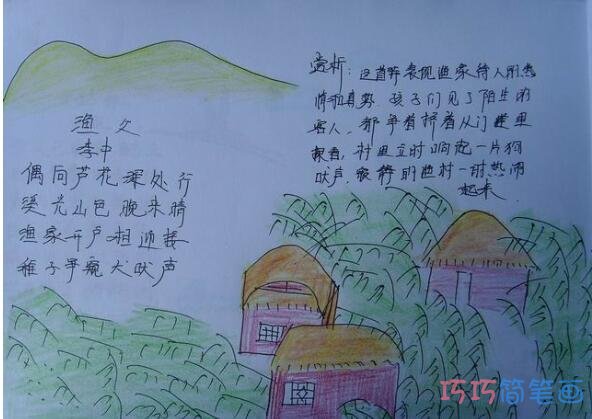 渔父
李中
偶向芦花深处行
溪光山色晚来晴
渔家开户相迎接
稚子争窥犬吠声
赏析：这首诗表现渔家待人的热
情和真势.孩子们见了陌生的
客人，都争着挤着从门缝里
观看，村里立时响起一片狗
吠声，寂静的渔村一时热闹
起来.
巧巧简笔画